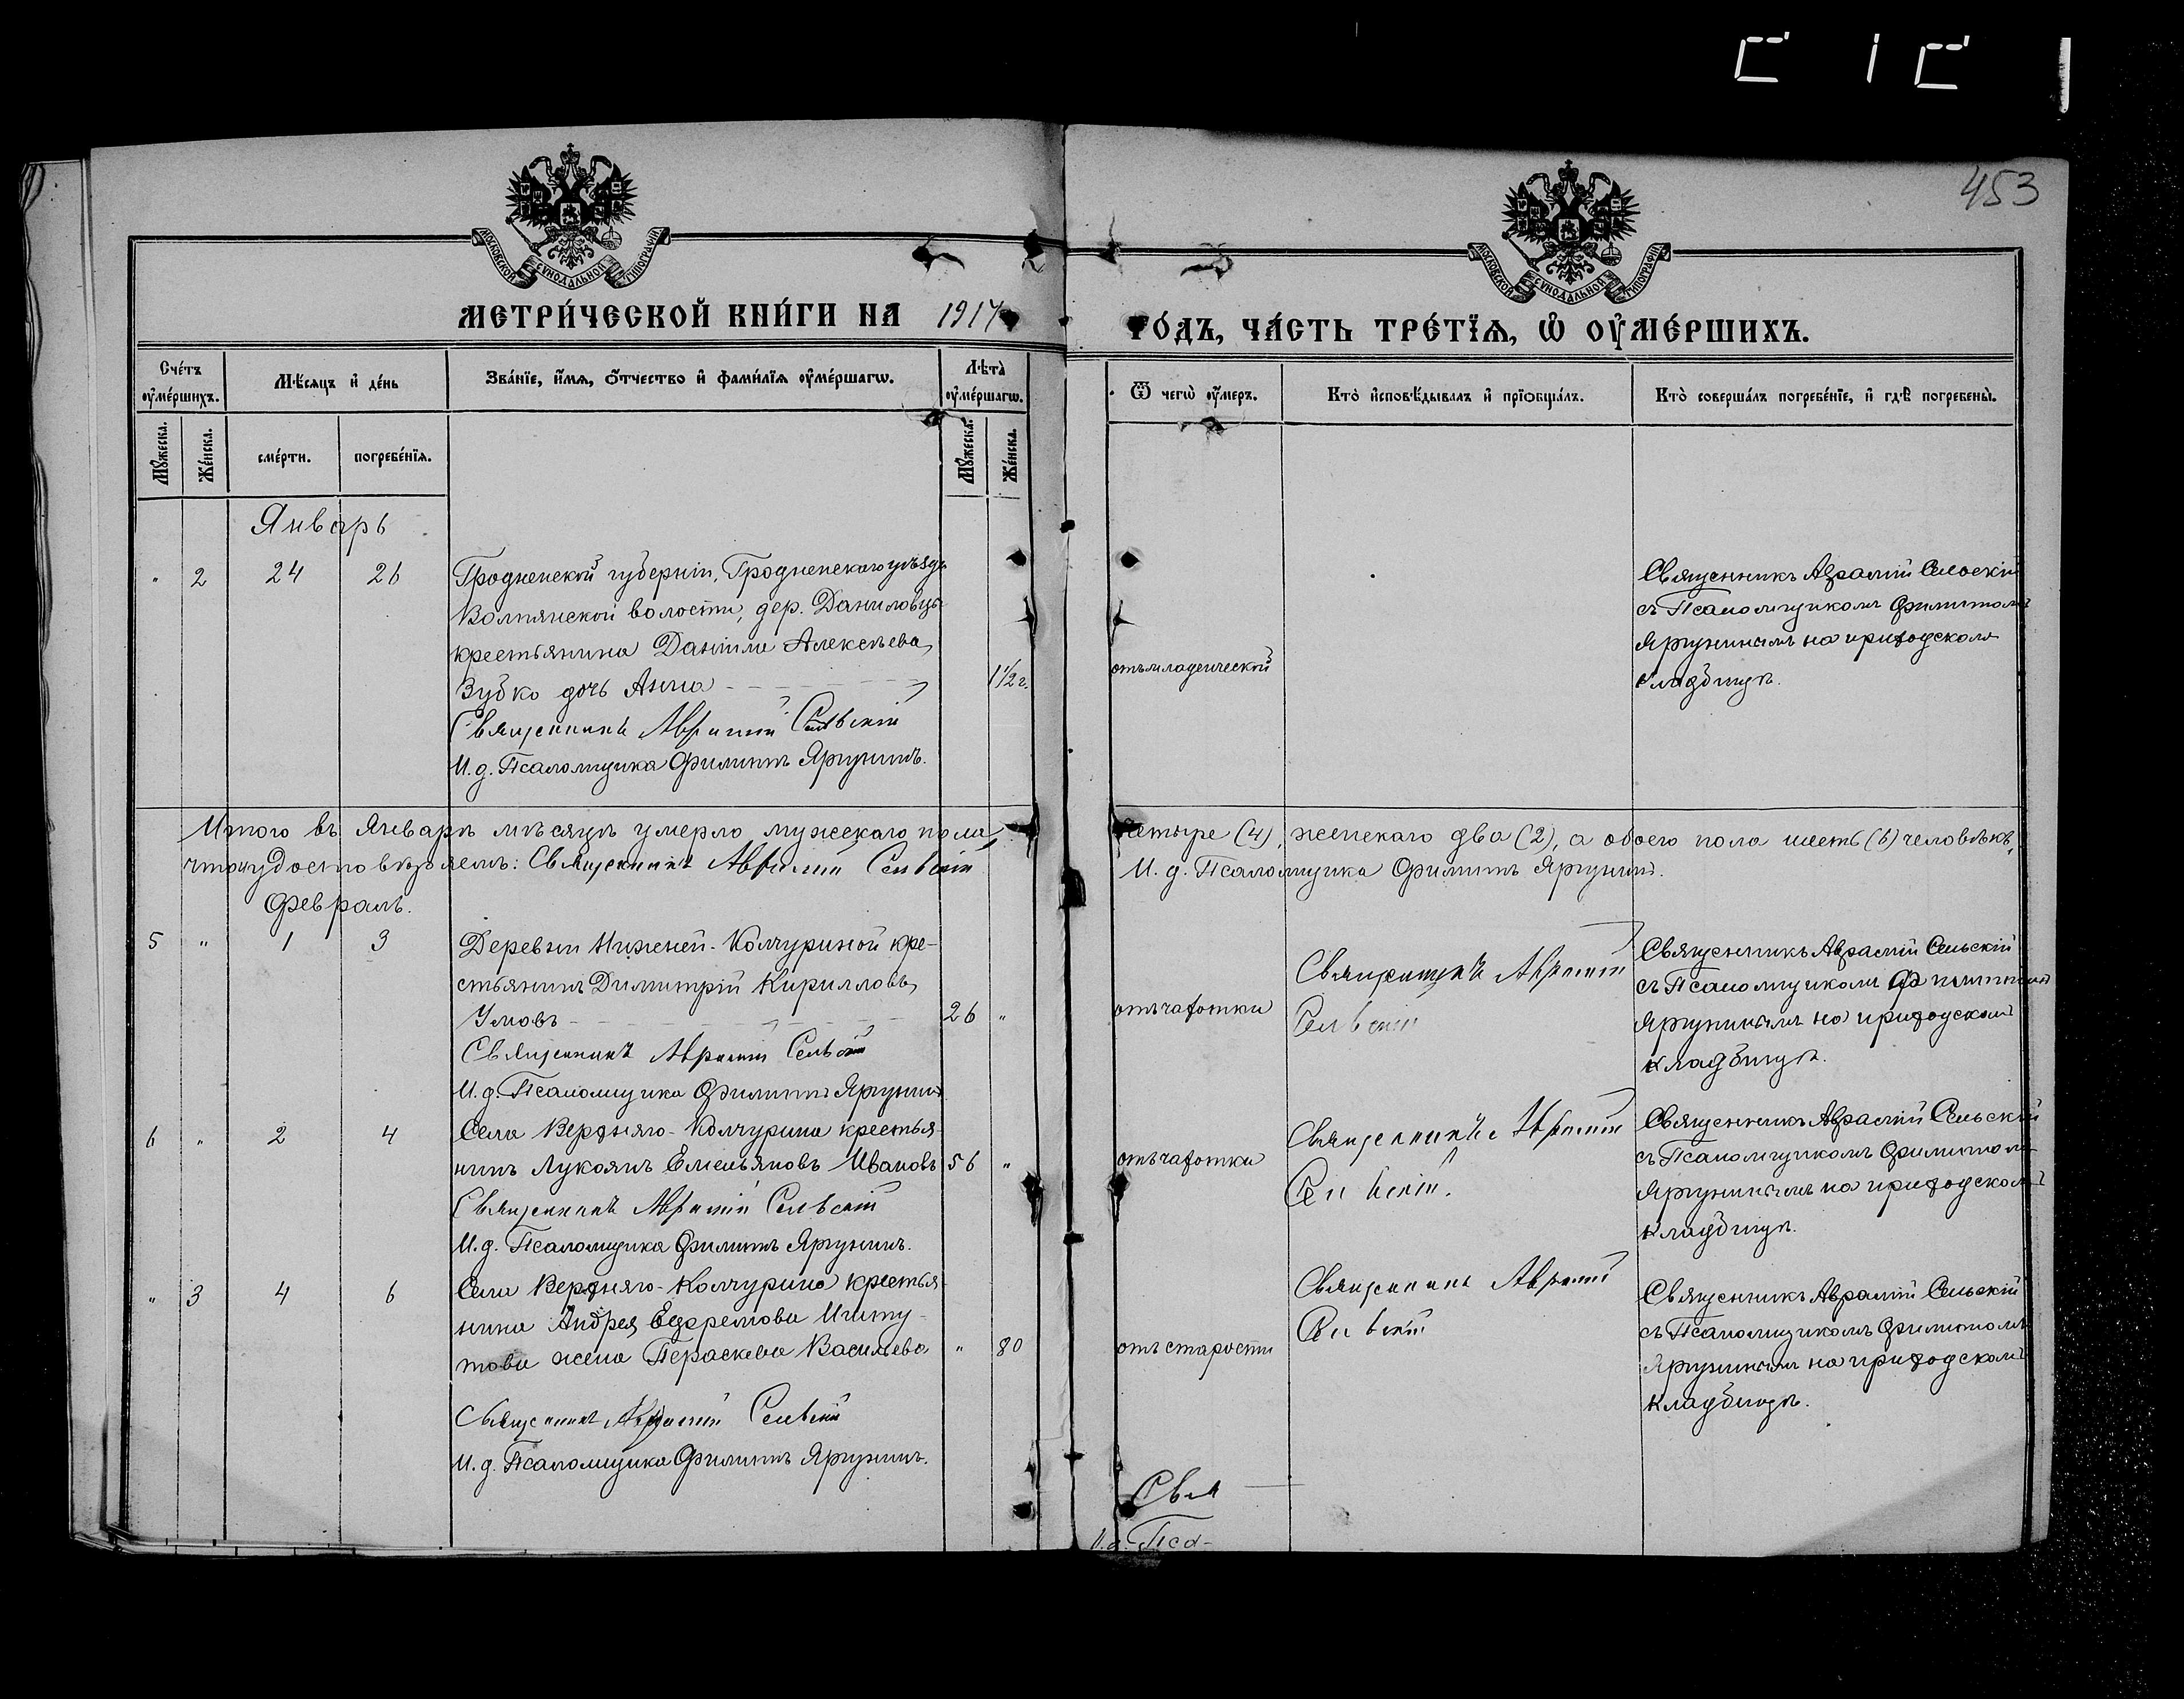 453
МОСКОВСКОЙ СѴНОДАЛЬНОЙ ТИПОГРАФІИ
МОСКОВСКОЙ СѴНОДАЛЬНОЙ ТИПОГРАФІИ
МЕТРИ́ЧЕСКОЙ КНИ́ГИ НА 1917 ГО́ДЪ, ЧА́СТЬ ТРЕ́ТЇѦ, Ѽ ОУ҆МЕ́РШИХЪ.
Сче́тъ оу҆ме́ршихъ.
Мѣ́сѧцъ и҆ де́нь
Зва́нїе, и҆́мѧ, ѻ҆́тчество и҆ фами́лїѧ оу҆ме́ршагѡ.
Лѣ́та оу҆ме́ршагѡ.
Ѿ чегѡ̀ оу҆́меръ.
Кто̀ и҆сповѣ́дывалъ и҆ прїѡбща́лъ.
Кто̀ соверша́лъ погребе́нїе, и҆ гдѣ̀ погребены̀.
Мꙋ́жеска.
Же́нска.
сме́рти.
погребе́нїѧ.
Мꙋ́жеска.
Же́нска.
Январь
" 2 24 26
Гродненской губерніи, Гродненскаго уѣзда
Волпянской волости, дер. Даниловцы
крестьянина Даніила Алексѣева
Зубко дочь Анна 1 1/2 г.
Священникъ Аврамій Сельскій
И. д. Псаломщика Филиппъ Яргунинъ.
отъ младенческой
Священникъ Аврамій Сельскій
съ Псаломщикомъ Филиппомъ
Яргунинымъ на приходскомъ
кладбищѣ.
Итого въ Январѣ мѣсяцѣ умерло мужскаго пола четыре (4), женскаго два (2), а обоего пола шесть (6) человѣкъ,
что и удостовѣряемъ: Священникъ Аврамій Сельскій И. д. Псаломщика Филиппъ Яргунинъ.
Февраль.
5 " 1 3
Деревни Нижней-Колчуриной кре-
стьянинъ Димитрій Кирилловъ
Умовъ 26 "
Священникъ Аврамій Сельскій
И. д. Псаломщика Филиппъ Яргунинъ
отъ чахотки
Священникъ Аврамій
Сельскій
Священникъ Аврамій Сельскій
съ Псаломщикомъ Филиппомъ
Яргунинымъ на приходскомъ
кладбищѣ.
6 " 2 4
Села Верхняго-Колчурина крестья-
нинъ Лукоянъ Емельяновъ Ивановъ 56 "
Священникъ Аврамій Сельскій
И. д. Псаломщика Филиппъ Яргунинъ.
отъ чахотки
Священникъ Аврамій
Сельскій.
Священникъ Аврамій Сельскій
съ Псаломщикомъ Филиппомъ
Яргунинымъ на приходскомъ
кладбищѣ.
" 3 4 6
Села Верхняго-Колчурина крестья-
нина Андрея Ефремова
жена Параскева Васильева " 80
Священникъ Аврамій Сельскій
И. д. Псаломщика Филиппъ Яргунинъ.
отъ старости
Священникъ Аврамій
Сельскій
Священникъ Аврамій Сельскій
съ Псаломщикомъ Филиппомъ
Яргунинымъ на приходскомъ
кладбищѣ.
Свя
И. д. Пса-